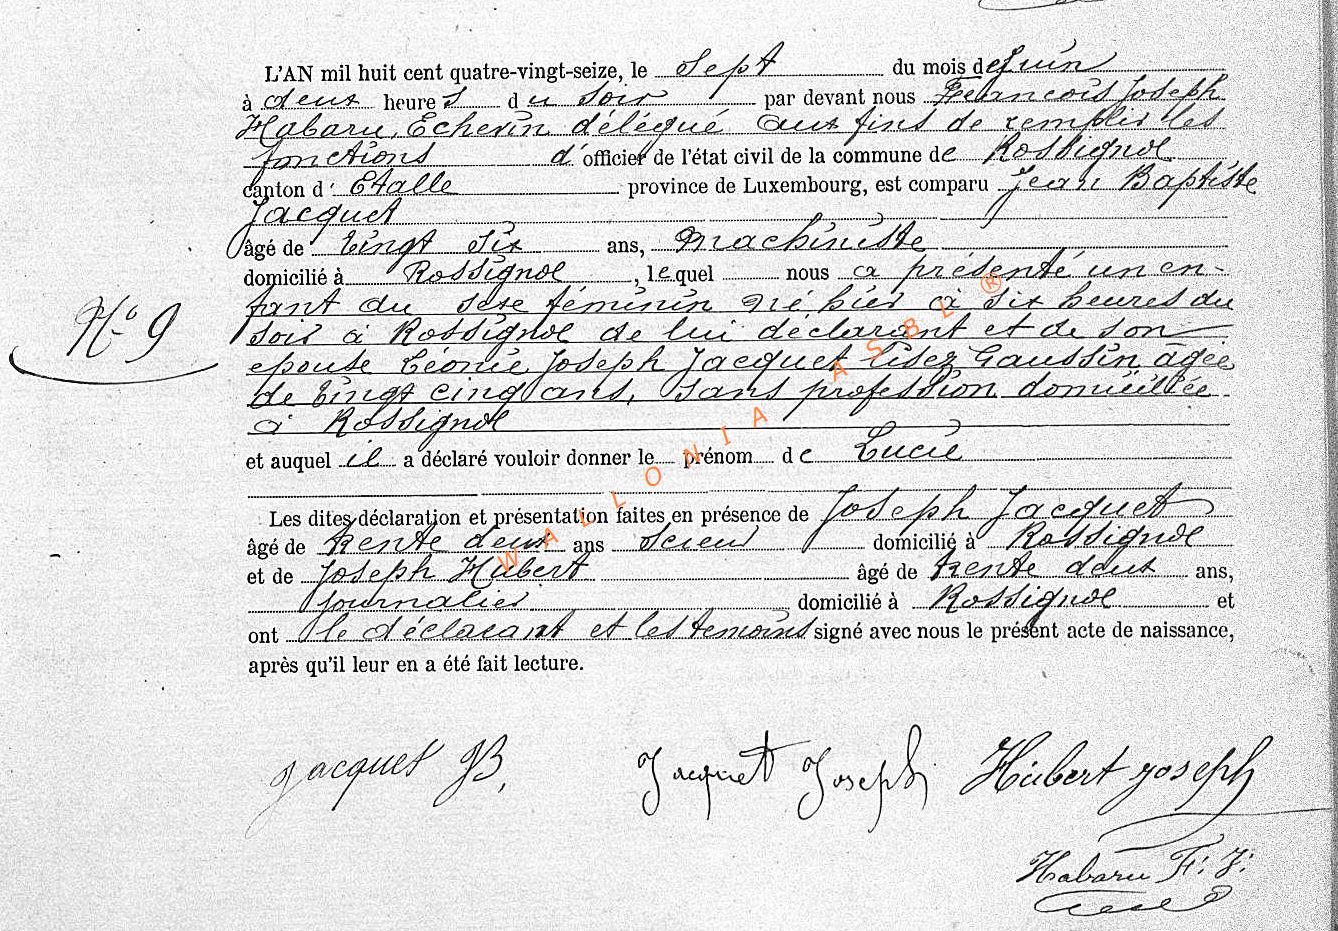 L'AN mil huit cent quatre-vingt-seize, le Sept du mois de Juin
à deux heures du soir par devant nous François Joseph
Habaru, Echevin délégué aux fins de remplir les
fonctions d'officier de l'état civil de la commune de Rossignol
canton d'Etalle province de Luxembourg, est comparu Jean Baptiste
Jacquet
âgé de Vingt six ans, Machiniste
domicilié à Rossignol, lequel nous a présenté un en-
fant du sexe féminin né hier à six heures du
soir à Rossignol de lui déclarant et de son
epouse Léonie Joseph Jacquet lisez Gaussin, âgée
de Vingt cinq ans, sans profession domiciliée
à Rossignol
N° 9
et auquel il a déclaré vouloir donner le prénom de Lucie
Les dites déclaration et présentation faites en présence de Joseph Jacquet
âgé de trente deux ans Scieur domicilié à Rossignol
et de Joseph Hubert âgé de trente deux ans,
Journalier domicilié à Rossignol et
ont le déclarant et les temoins signé avec nous le présent acte de naissance,
après qu'il leur en a été fait lecture.
WALLONIA ASBL ®
Jacquet JB, Jacquet Joseph Hubert Joseph
Habaru F. J.